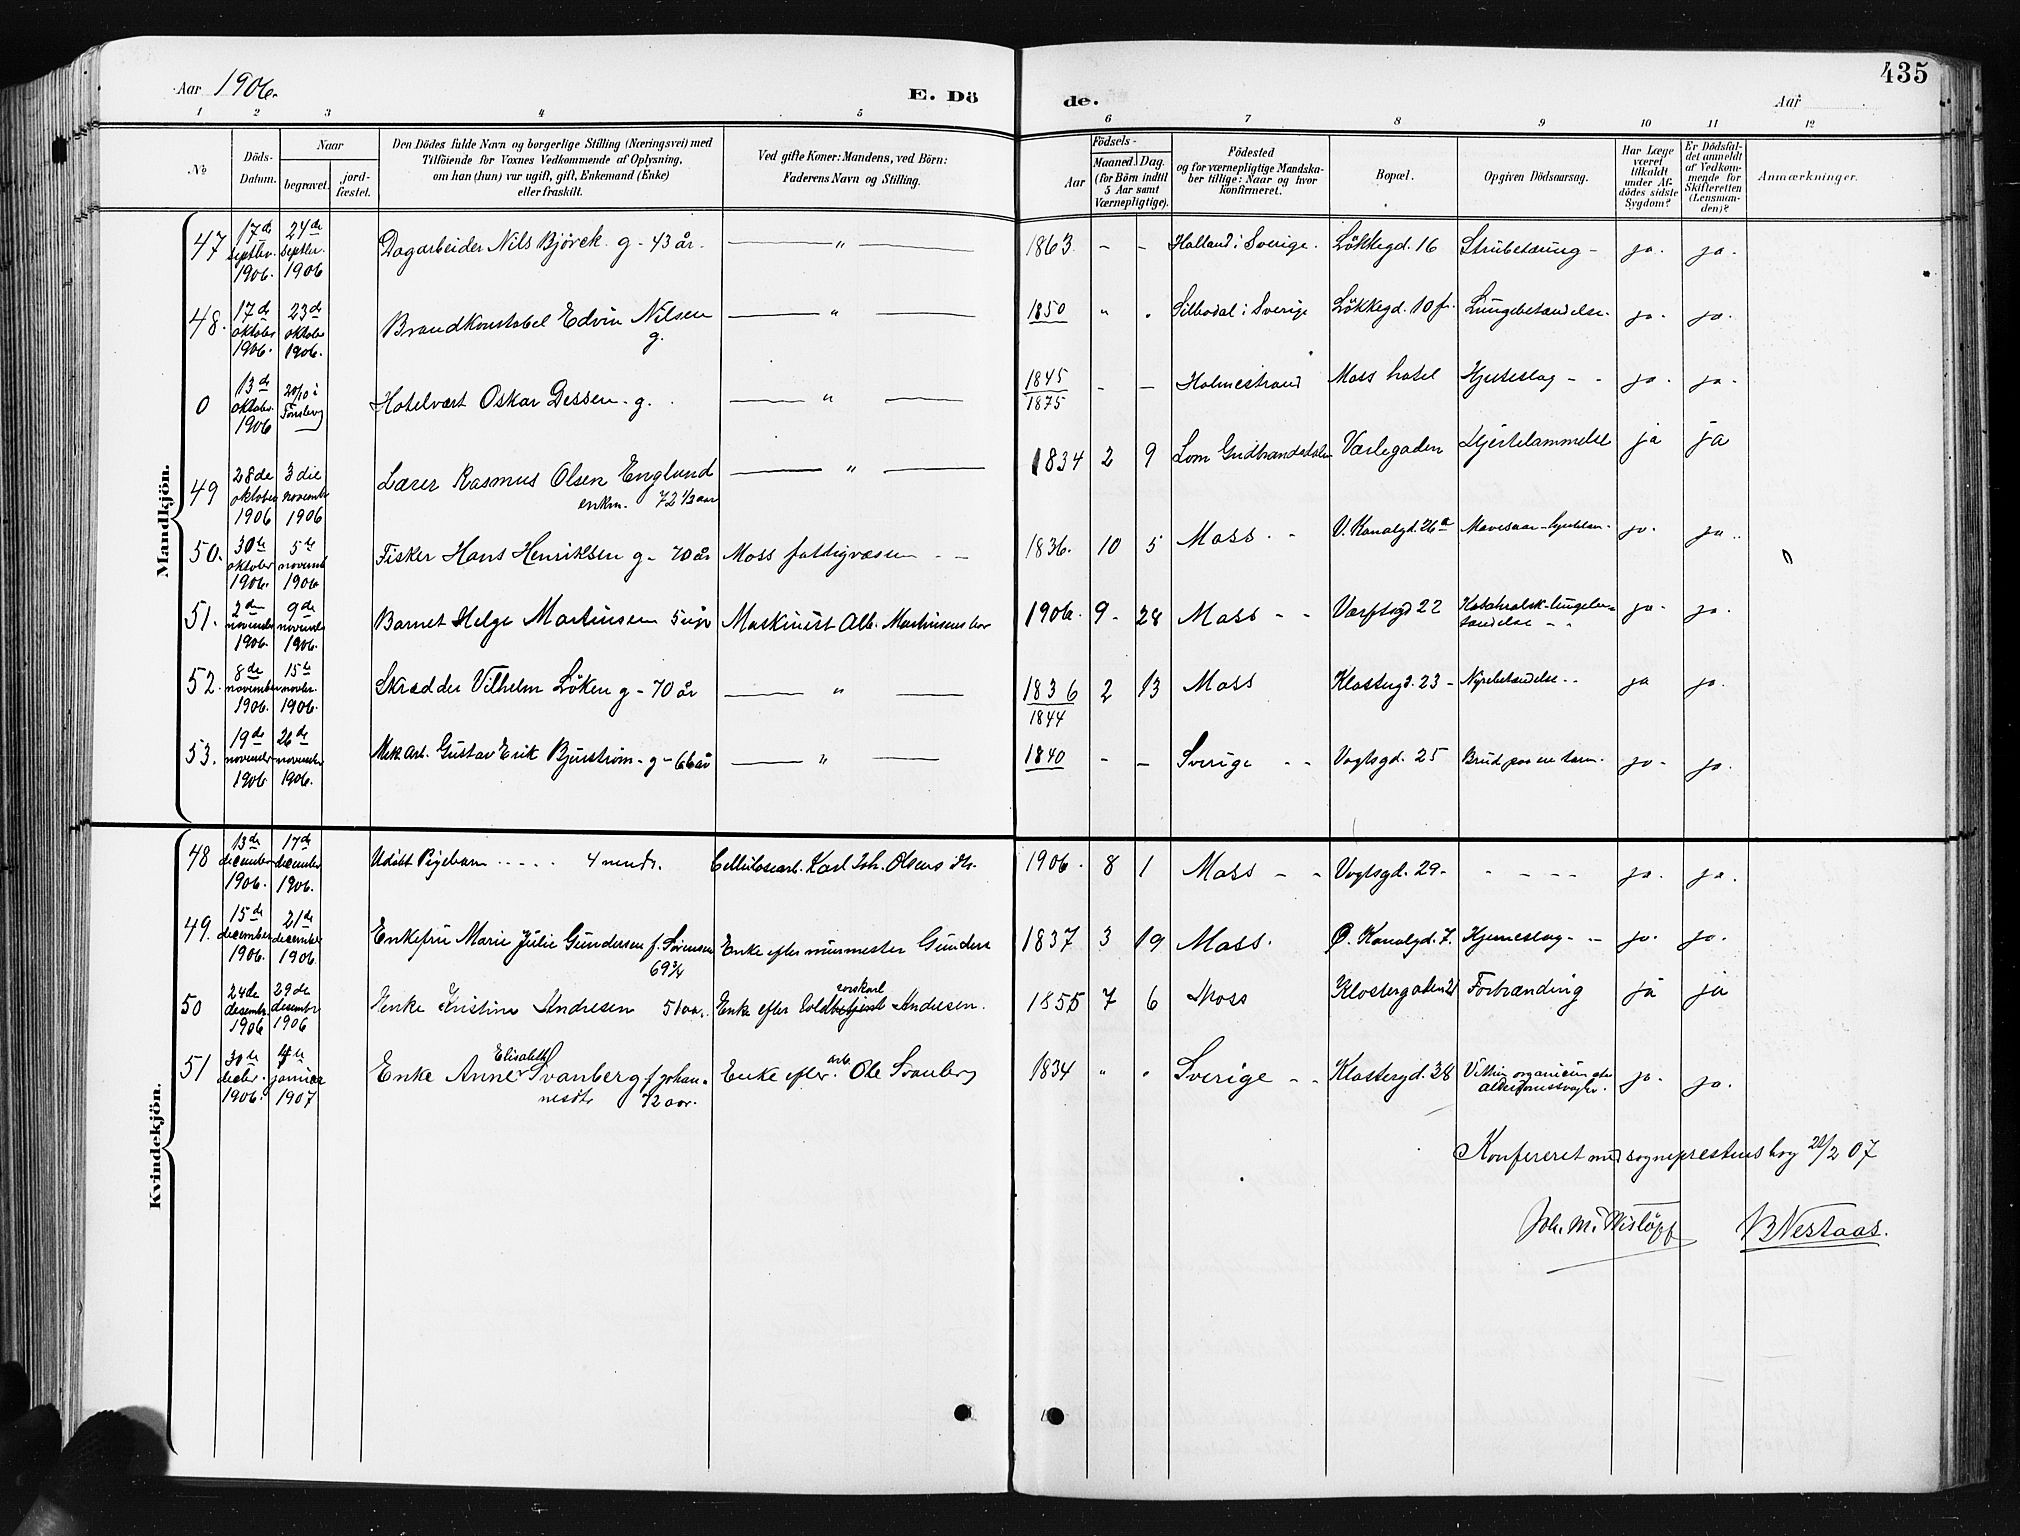 Aar 1906.
E. Dö de.
Aar
435
1 2 3 4 5 6 7 8 9 10 11 12
№
Döds-Datum.
Naar
begravet.
jord-fæstet.
Den Dödes fulde Navn og borgerlige Stilling (Næringsvei) med
Tilföiende for Voxnes Vedkommende af Oplysning,
om han (hun) var ugift, gift, Enkemand (Enke)
eller fraskilt.
Ved gifte Koner: Mandens, ved Börn:
Faderens Navn og Stilling.
Födsels-
Aar
Maaned. Dag.
(for Börn indtil
5 Aar samt
Værnepligtige).
Födested
og for værnepligtige Mandska-
ber tillige: Naar og hvor
konfirmeret.
Bopæl.
Opgiven Dödsaarsag.
Har Læge
været
tilkaldt
under Af-
dödes sidste
Sygdom?
Er Dödsfal-
det anmeldt
af Vedkom-
mende for
Skifteretten
(Lensman-
den)?
Anmærkninger.
Mandkjön.
47 17de septbr. 1906. 24de septbr. 1906 Dagarbeider Nils Bjövek g - 43 år. — " — 1863 - - Halland i Sverige. Lökkegd. 16 Strubetæring - ja. ja.
48. 17de oktober 1906. 23de oktober 1906. Brandkonstabel Edvin Nilsen g. — " — 1850 " " Silbodal i Sverige Lökkegd. 10 Lungebetændelse. ja. ja.
0 13de oktober 1906 20/10 i Tönsberg Hotelvært Oskar Dessen - g. — " — 1845 1875 - - Holmestrand Moss hotel Hjerteslag - - ja. ja.
49 28de oktober 1906 3die november 1906 Lærer Rasmus Olsen Englund enkm. 72 1/2 aar — " — 1834 2 9 Lom Gudbrandsdalen Værlegaden Hjertelammelse ja ja
50. 30te oktober 1906. 5te november 1906 Fisker Hans Henriksen g - 70 år Moss fattigvæsen - - 1836. 10 5 Moss - - V. Kanalgd. 26a Mavesaar- ja. ja.
51. 2den november 1906 9de november 1906. Barnet Helge Martinsen 5 uger Maskinist Alb. Martinsens bar 1906. 9 - 28 Moss - - Værftsgd 22 Katahralsk-lungebe-tændelse - - ja. ja.
52. 8de november 1906. 15te novbr. 1906. Skrædder Vilhelm Löken g - 70 år — " — 1836 1844 2 13 Moss Klostergd. 23 - Nyrebetændelse - - ja ja.
53. 19de november 1906 26de november 1906. Mek. Arb. Gustav Erik Bjurström - g - 66 år — " — 1840 - - Sverige - - Vogtsgd. 25 Brud paa en tarm. ja - ja.
Kvindekjön.
48 13de december 1906. 17de december 1906. Udöbt Pigebarn ..... 4 mndr. Cellulosearb. Karl Joh. Olsens 1906. 8 1 Moss - - Vogtsgd. 29 - - - - - ja. ja.
49. 15de december 1906. 21de december 1906 Enkefru Marie Julie Gundersen f. Svensen 69 3/4 Enke efter murmester Gunders 1837 3 19 Moss. Ø. Kanalgd. 7. Hjerneslag - - ja. ja.
50 24de desembr. 1906 29de desembr 1906 Enke Kristine Andresen 51 aar. Enke efter Toldbetjent Andresen. 1855 7 6 Moss Klostergaden 21 Forbrænding ja ja
51 30te decbr. 1906. 4de januar 1907 Enke Anne Elisabeth Svanberg f. Johan-nesdtr 72 aar. Enke efter arb. Ole Svanberg 1834 " " Sverige - - Klostergd. 38 Vitium organicum cordis alderdomssvaghed. ja. ja.
Konfereret med sogneprestens bog 21/2 07
Joh. M. Wislöff
B Nestaas.